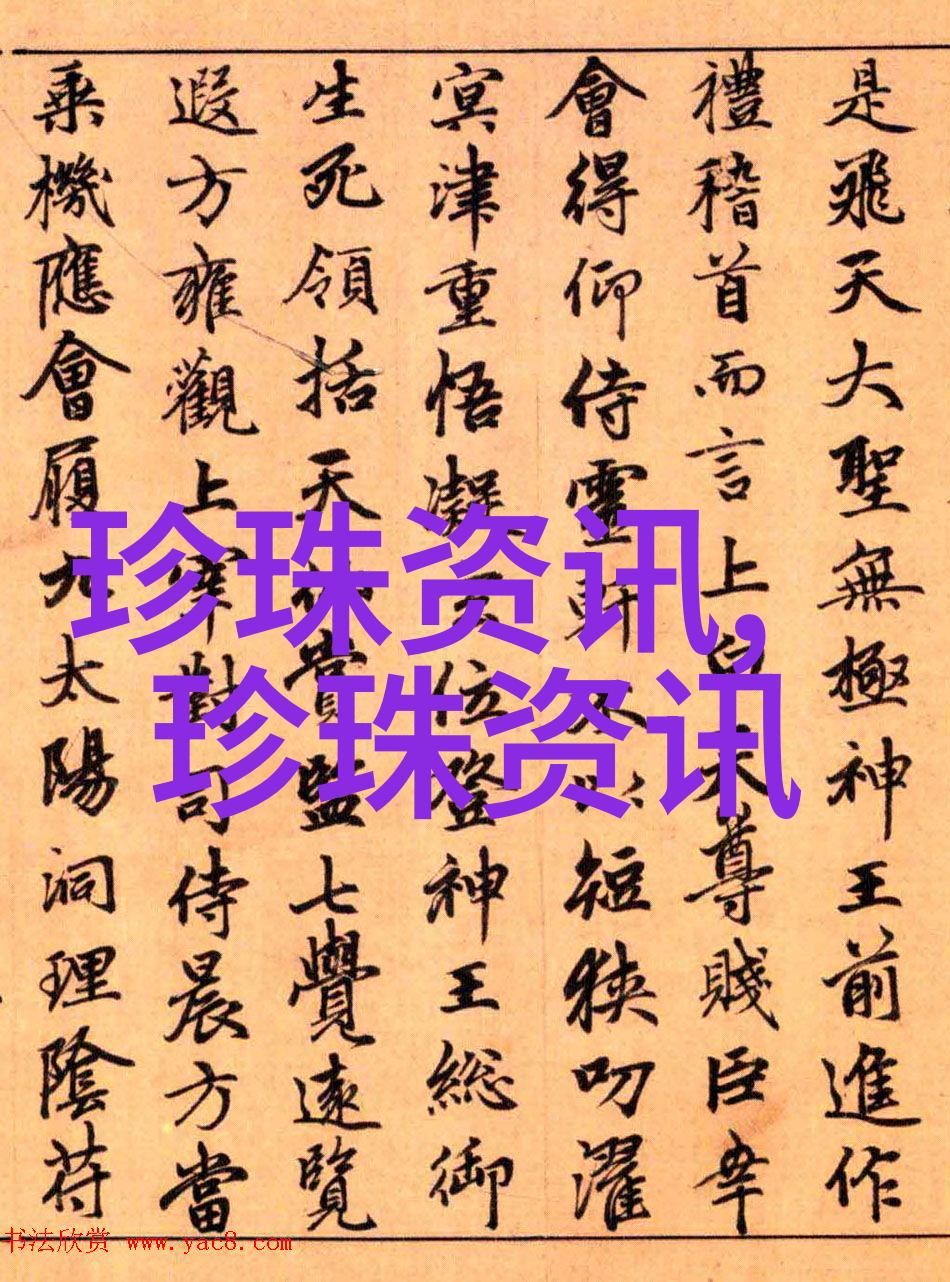 是飛天大聖無極神王前進作
禮稽首而言上白天尊賤臣幸
會得仰侍靈軒不以短狹叨濯
冥津重悟凝玄位登神王総御
生死領括天仙賞監七覺遠覽
遐方雍觀上宰對司侍晨方當
乘機應會履九太陽洞理陰苻
珍珠资讯,
珍珠资讯
书法欣赏 www.yac8.com